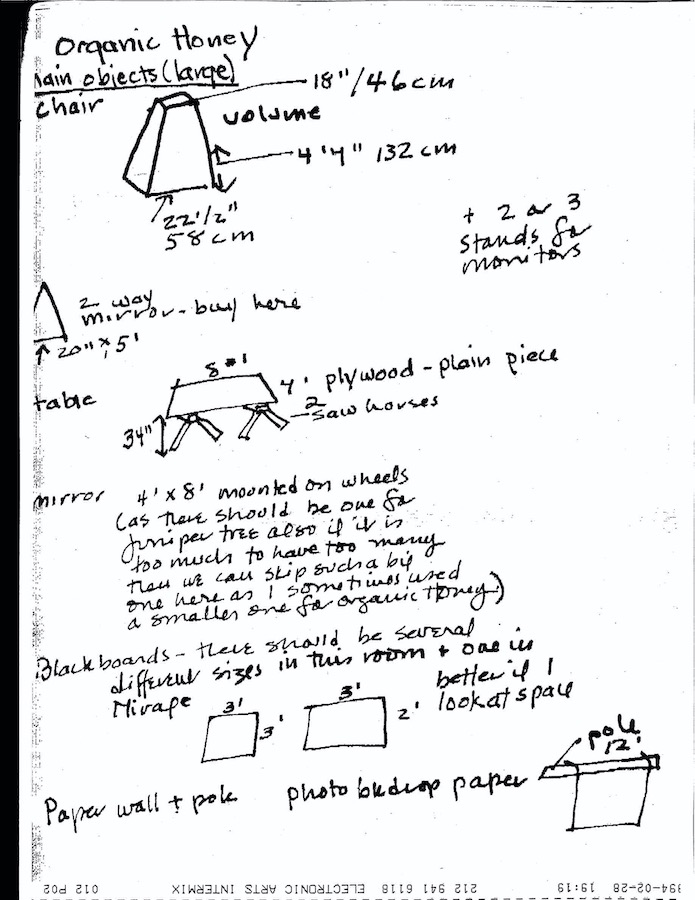 Organic Honey
main objects (large)
chair
18"/46 cm
volume
4'4" 132 cm
22 1/2"
58 cm
+ 2 or 3
stands for
monitors
2 way
mirror - buy here
20" x 5'
table
8'
4' plywood - plain piece
2
saw horses
34"
mirror 4' x 8' mounted on wheels
(as there should be one for
Juniper tree also if it is
too much to have too many
then we can skip such a big
one here as I sometimes used
a smaller one for organic Honey)
Blackboards - there should be several
different sizes in this room + one in
Mirage
better if I
look at space
3'
3'
3'
2'
pole
12'
Paper wall + pole photo bkdrop paper
394-02-28 19:19 ELECTRONIC ARTS INTERMIX 212 941 6118 012 P02